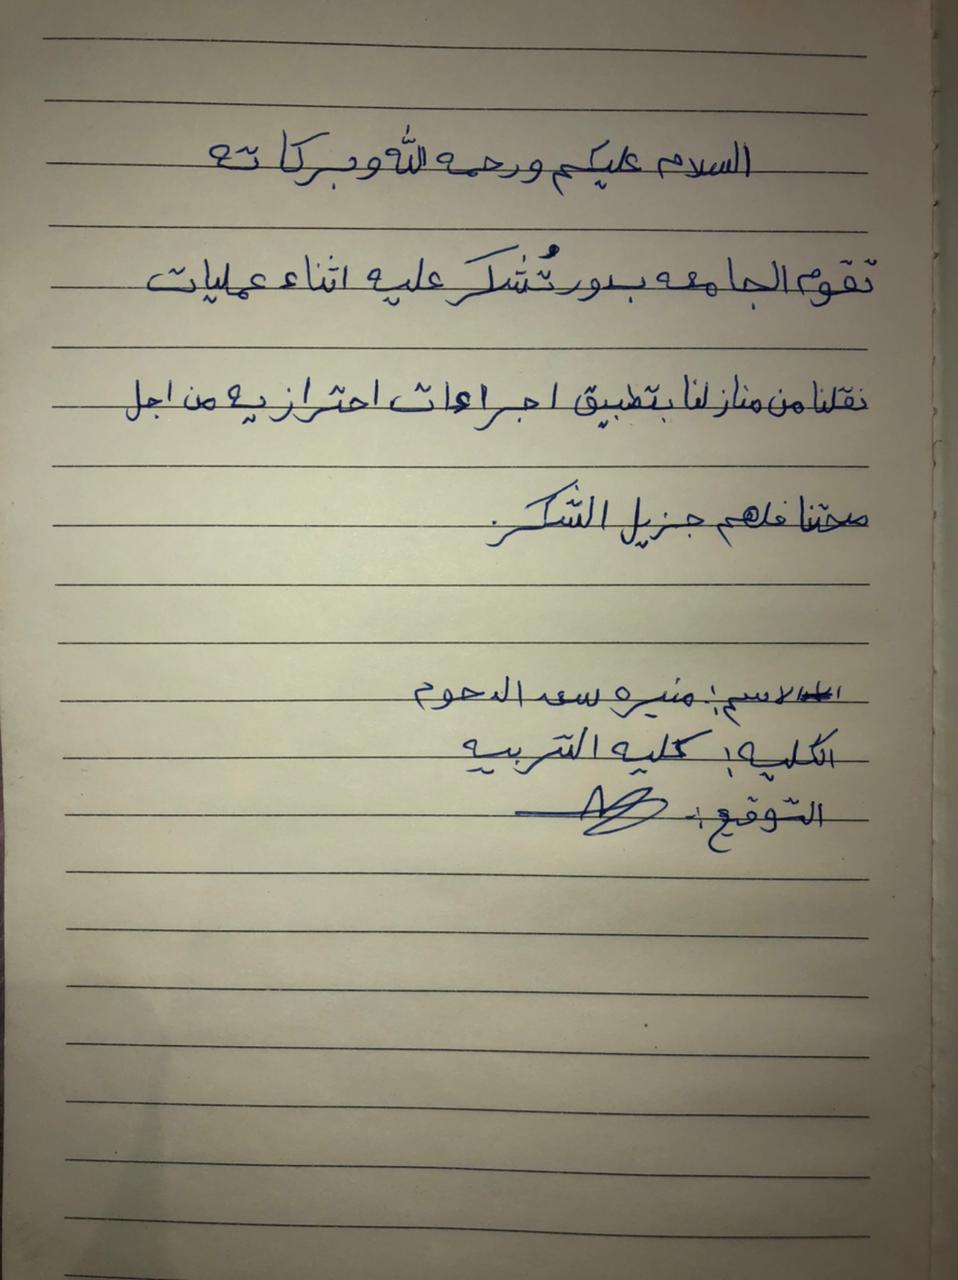 السلام عليكم ورحمه الله وبركاته
تقوم الجامعه بدور تُشكر عليه اثناء عمليات
نقلنا من منازلنا بتطبيق اجراءات احترازيه من اجل
صحتنا فلهم جزيل الشكر.
الاسم: منيره سعد الدحوم
الكليه: كليه التربيه
التوقيع:-